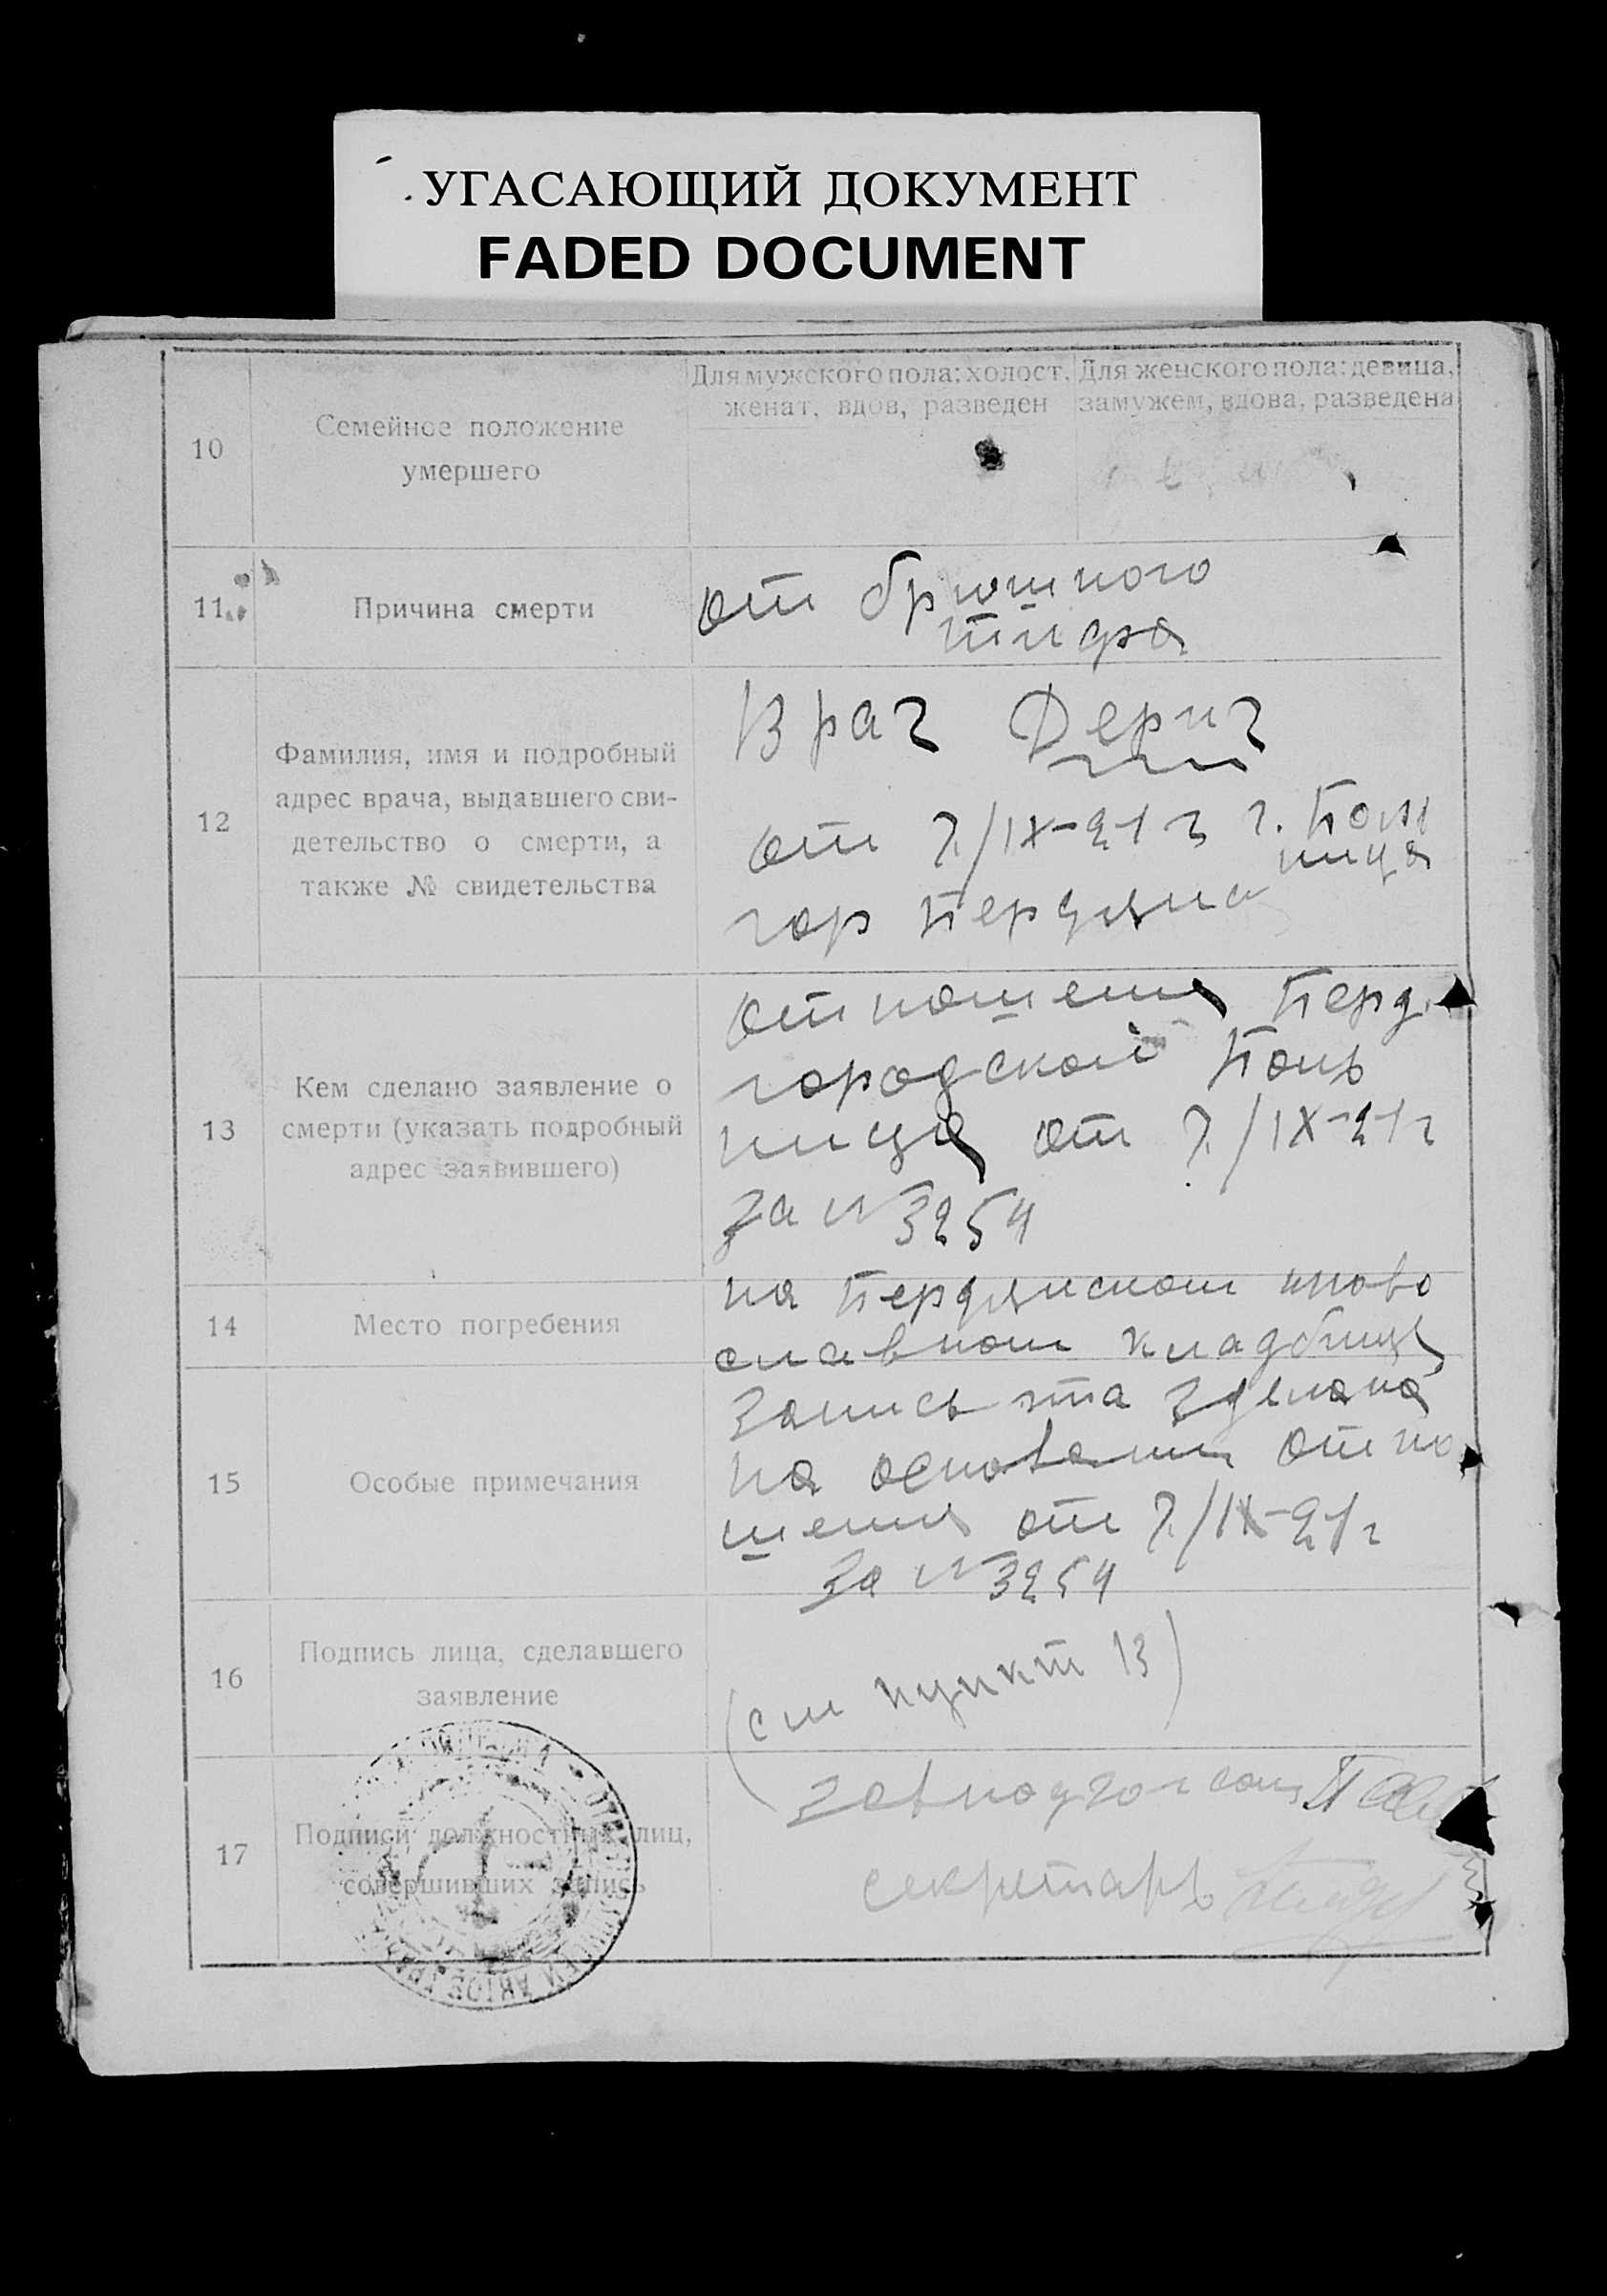 УГАСАЮЩИЙ ДОКУМЕНТ
FADED DOCUMENT
10
Семейное положение
умершего
Для мужского пола: холост,
женат, вдов, разведен
Для женского пола: девица,
замужем, вдова, разведена
11
Причина смерти
от брюшного
тифа
12
Фамилия, имя и подробный
адрес врача, выдавшего сви-
детельство о смерти, а
также № свидетельства
Врач Дерич
от 7/IX-21 г г. Боль
ница
гор Бердянска
13
Кем сделано заявление о
смерти (указать подробный
адрес заявившего)
отношения Берд.
городской Боль
ница от 7/IX-21 г
за № 3254
14
Место погребения
на Бердянском право
славном кладбище
15
Особые примечания
Запись эта зделана
на основании отно
шения от 7/IX-21 г
за № 3254
16
Подпись лица, сделавшего
заявление
(см пункт 13)
17
Подписи должностных лиц,
совершивших запись
Завподзагсом
секретарь